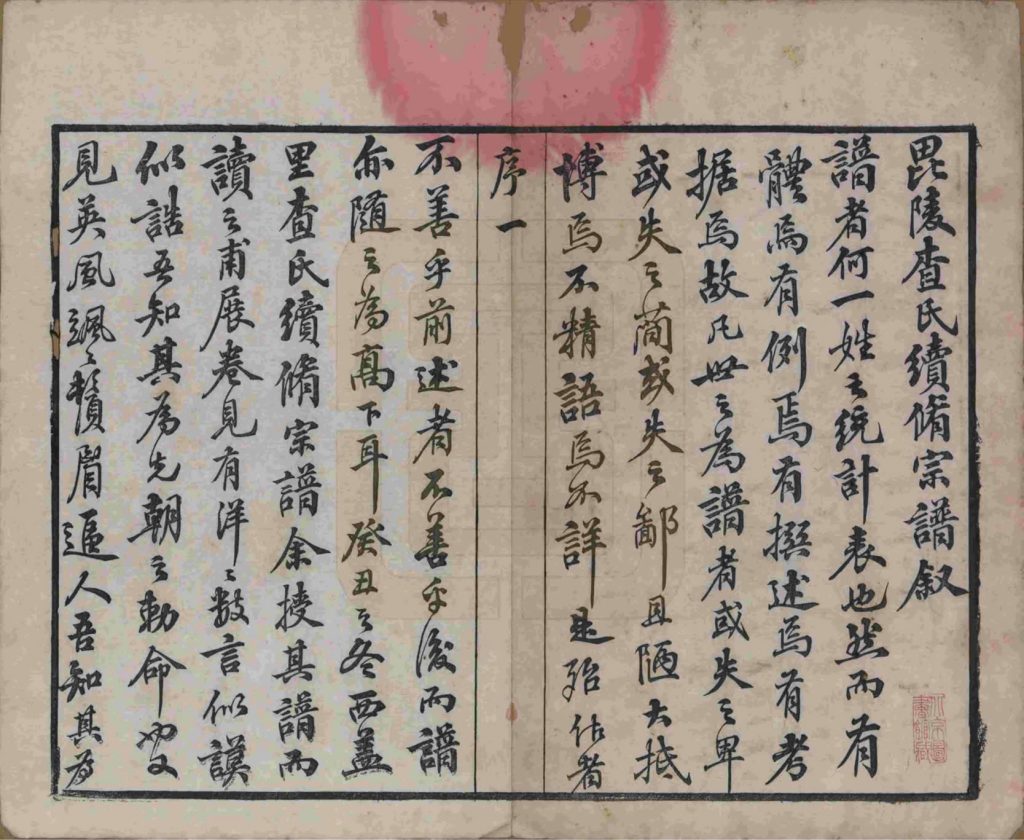 毘陵查氏續脩宗譜叙
譜者何一姓之統計表也然而有
體焉有例焉有撰述焉有考
据焉故凡世之為譜者或失之卑
或失之蕳或失之鄙且陋大抵
博焉不精語焉不詳是殆作者
序一
不善乎前述者不善乎後而譜
亦随之為髙下耳癸丑之冬西盖
里查氏續脩宗譜余授其譜而
讀之甫展卷見有洋〻數言似謨
似誥吾知其為先朝之勅命也又
見英風颯〻鬚眉逼人吾知其為